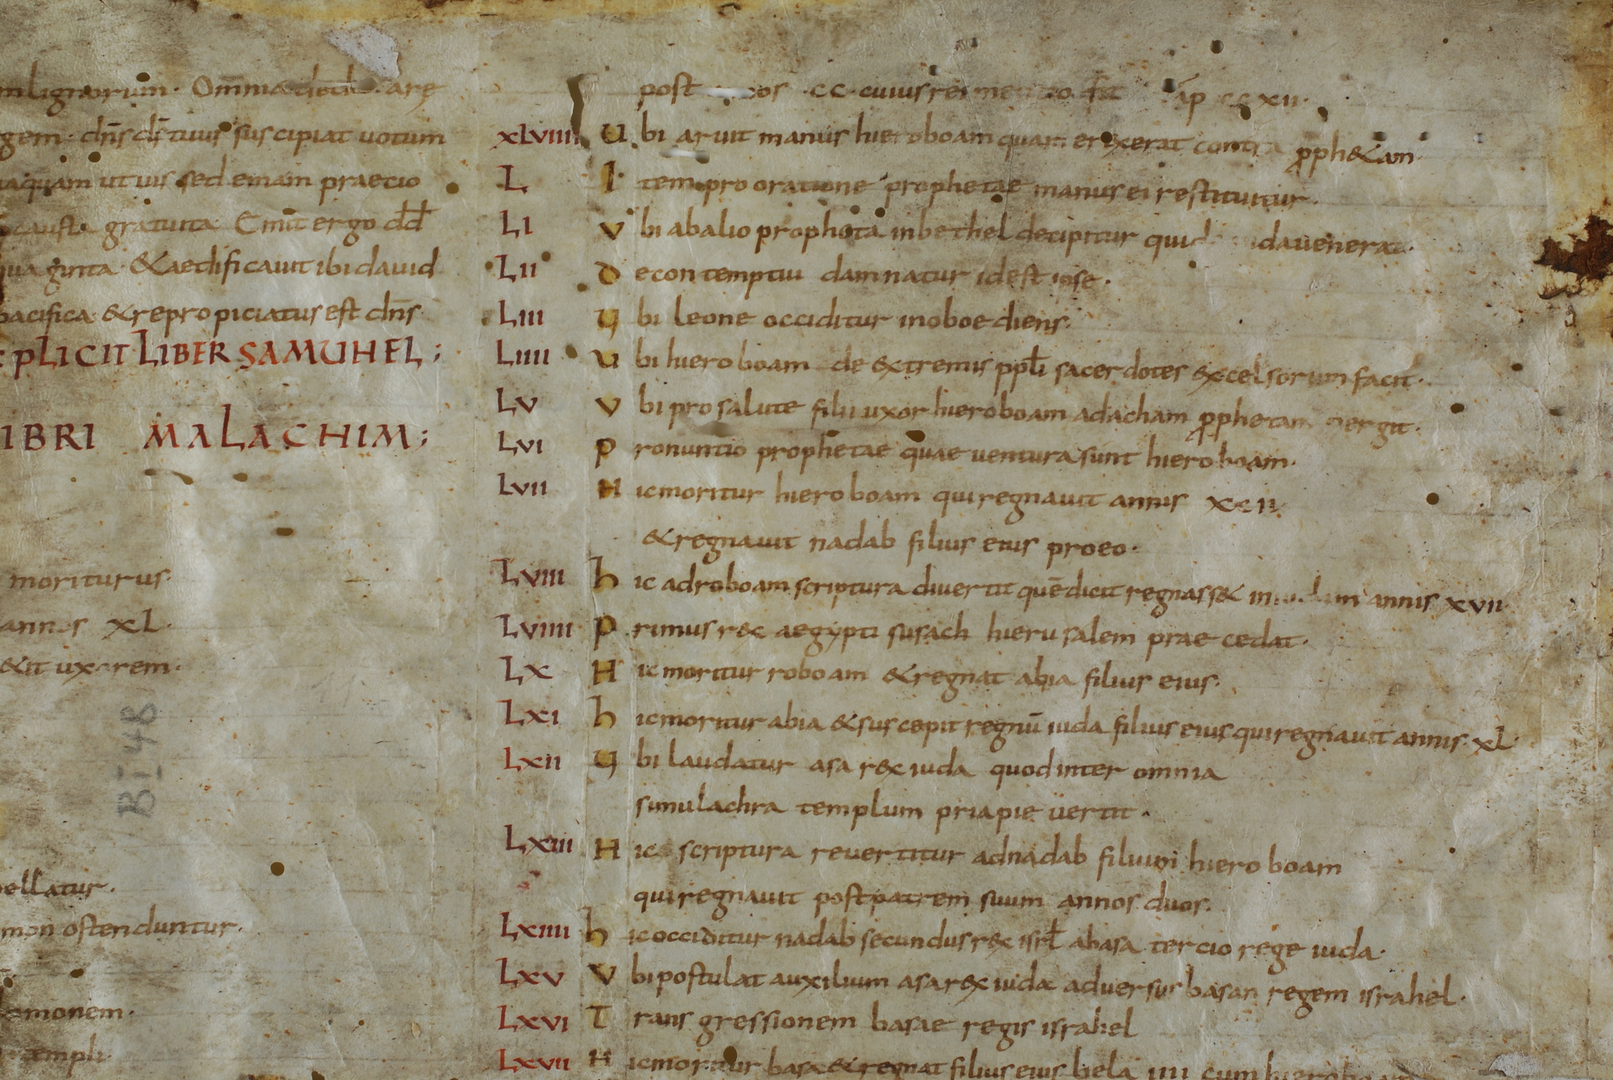 omnia are
gem· dn̄s d̄s tuus suscipiat uotum
quam ut uis sed emam praecio
gratuita· Emit ergo dd̄
ginta· &aedificauit ibi dauid
pacifica· &repropiciatus est dn̄s·
PLICIT LIBER SAMUHEL;
IBRI MALACHIM;
moriturus·
annos XL·
uxorem·
ellatur·
mon ostenduntur·
monem·
templi·
BI 48
post cc· cuius rei cap ccxii·
XLVIIII Ubi aruit manus hieroboam quam erexerat contra p̄ph&am·
L Item pro oratione prophetae manus ei restituitur·
LI Vbi ab alio propheta in bethel decipitur qui
LII De contemptu damnatur id est iose·
LIII Ubi leone occiditur inoboediens·
LIIII Ubi hieroboam de extremis ppl̄i sacerdotes excelsorum facit·
LV Vbi pro salute filii uxor hieroboam ad acham p̄phetam pergit·
LVI Pronuntio prophetae quae uentura sunt hieroboam·
LVII Hic moritur hieroboam qui regnauit annis xxii·
&regnauit nadab filius eius pro eo·
LVIII hic ad roboam scriptura diuertit quē dicit regnass& annis xvii·
LVIIII Primus rex aegypti susach hierusalem praecedat·
LX Hic moritur roboam &regnat abia filius eius·
LXI hic moritur abia &suscepit regnū iuda filius eius qui regnauit annis· xL·
LXII Ubi laudatur asa rex iuda quod inter omnia
simulachra templum priapi euertit·
LXIII Hic scriptura reuertitur ad nadab filium hieroboam
qui regnauit post patrem suum annos duos·
LXIIII hic occiditur nadab secundus rex isrl̄ abasa tercio rege iuda·
LXV Vbi postulat auxilium asa rex iudae aduersus basan regem israhel·
LXVI Transgressionem basae regis israhel
LXVII Hic moritur basa &regnat filius eius hela IIII cum